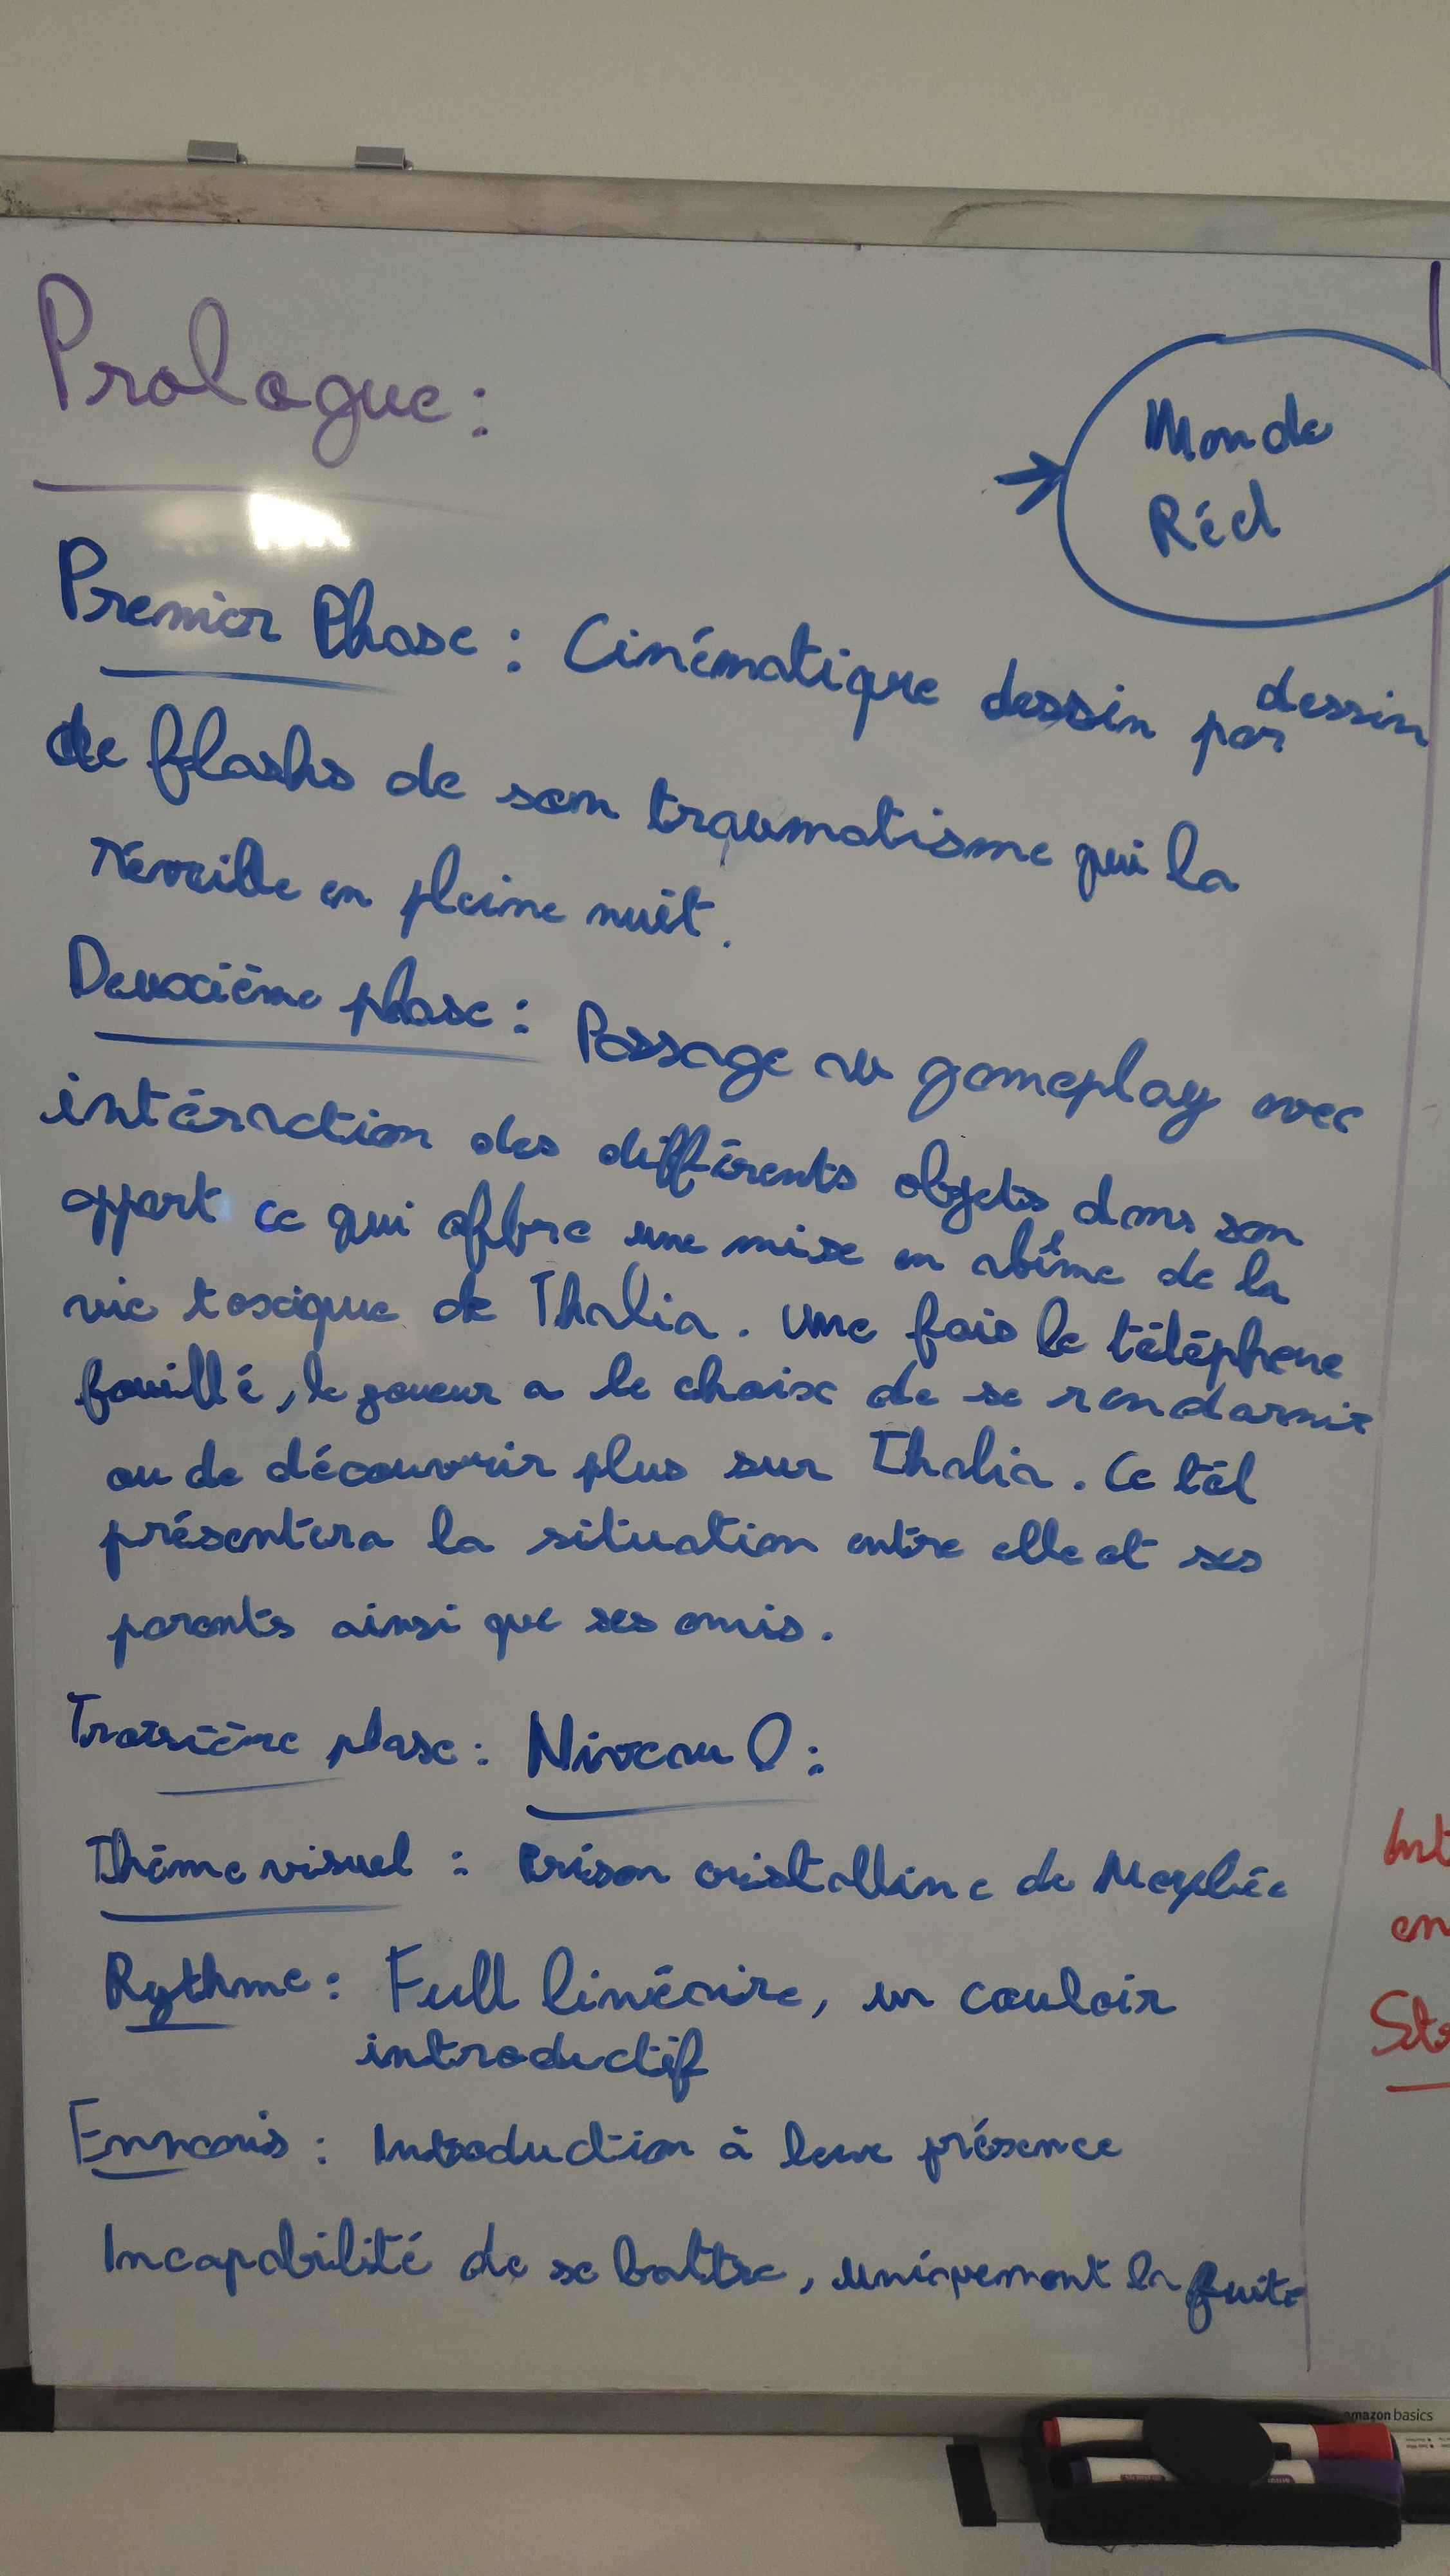 Prologue :
Monde
Réel
Premier Phase : Cinématique dessin par dessin
de flashs de son traumatisme qui la
réveille en pleine nuit.
Deuxième phase : Passage au gameplay avec
intéraction des différents objets dans son
appart ce qui offre une mise en abîme de la
vie toxique de Thalia. Une fois le téléphone
fouillé, le joueur a le choix de se rendormir
ou de découvrir plus sur Thalia. Ce tél
présentera la situation entre elle et ses
parents ainsi que ses amis.
Troisième phase : Niveau 0 :
Thème visuel : Prison cristalline de Morphée
Rythme : Full linéaire, un couloir
introductif
Ennemis : Introduction à leur présence
Incapabilité de se battre, uniquement la fuite
Int
en
amazon basics